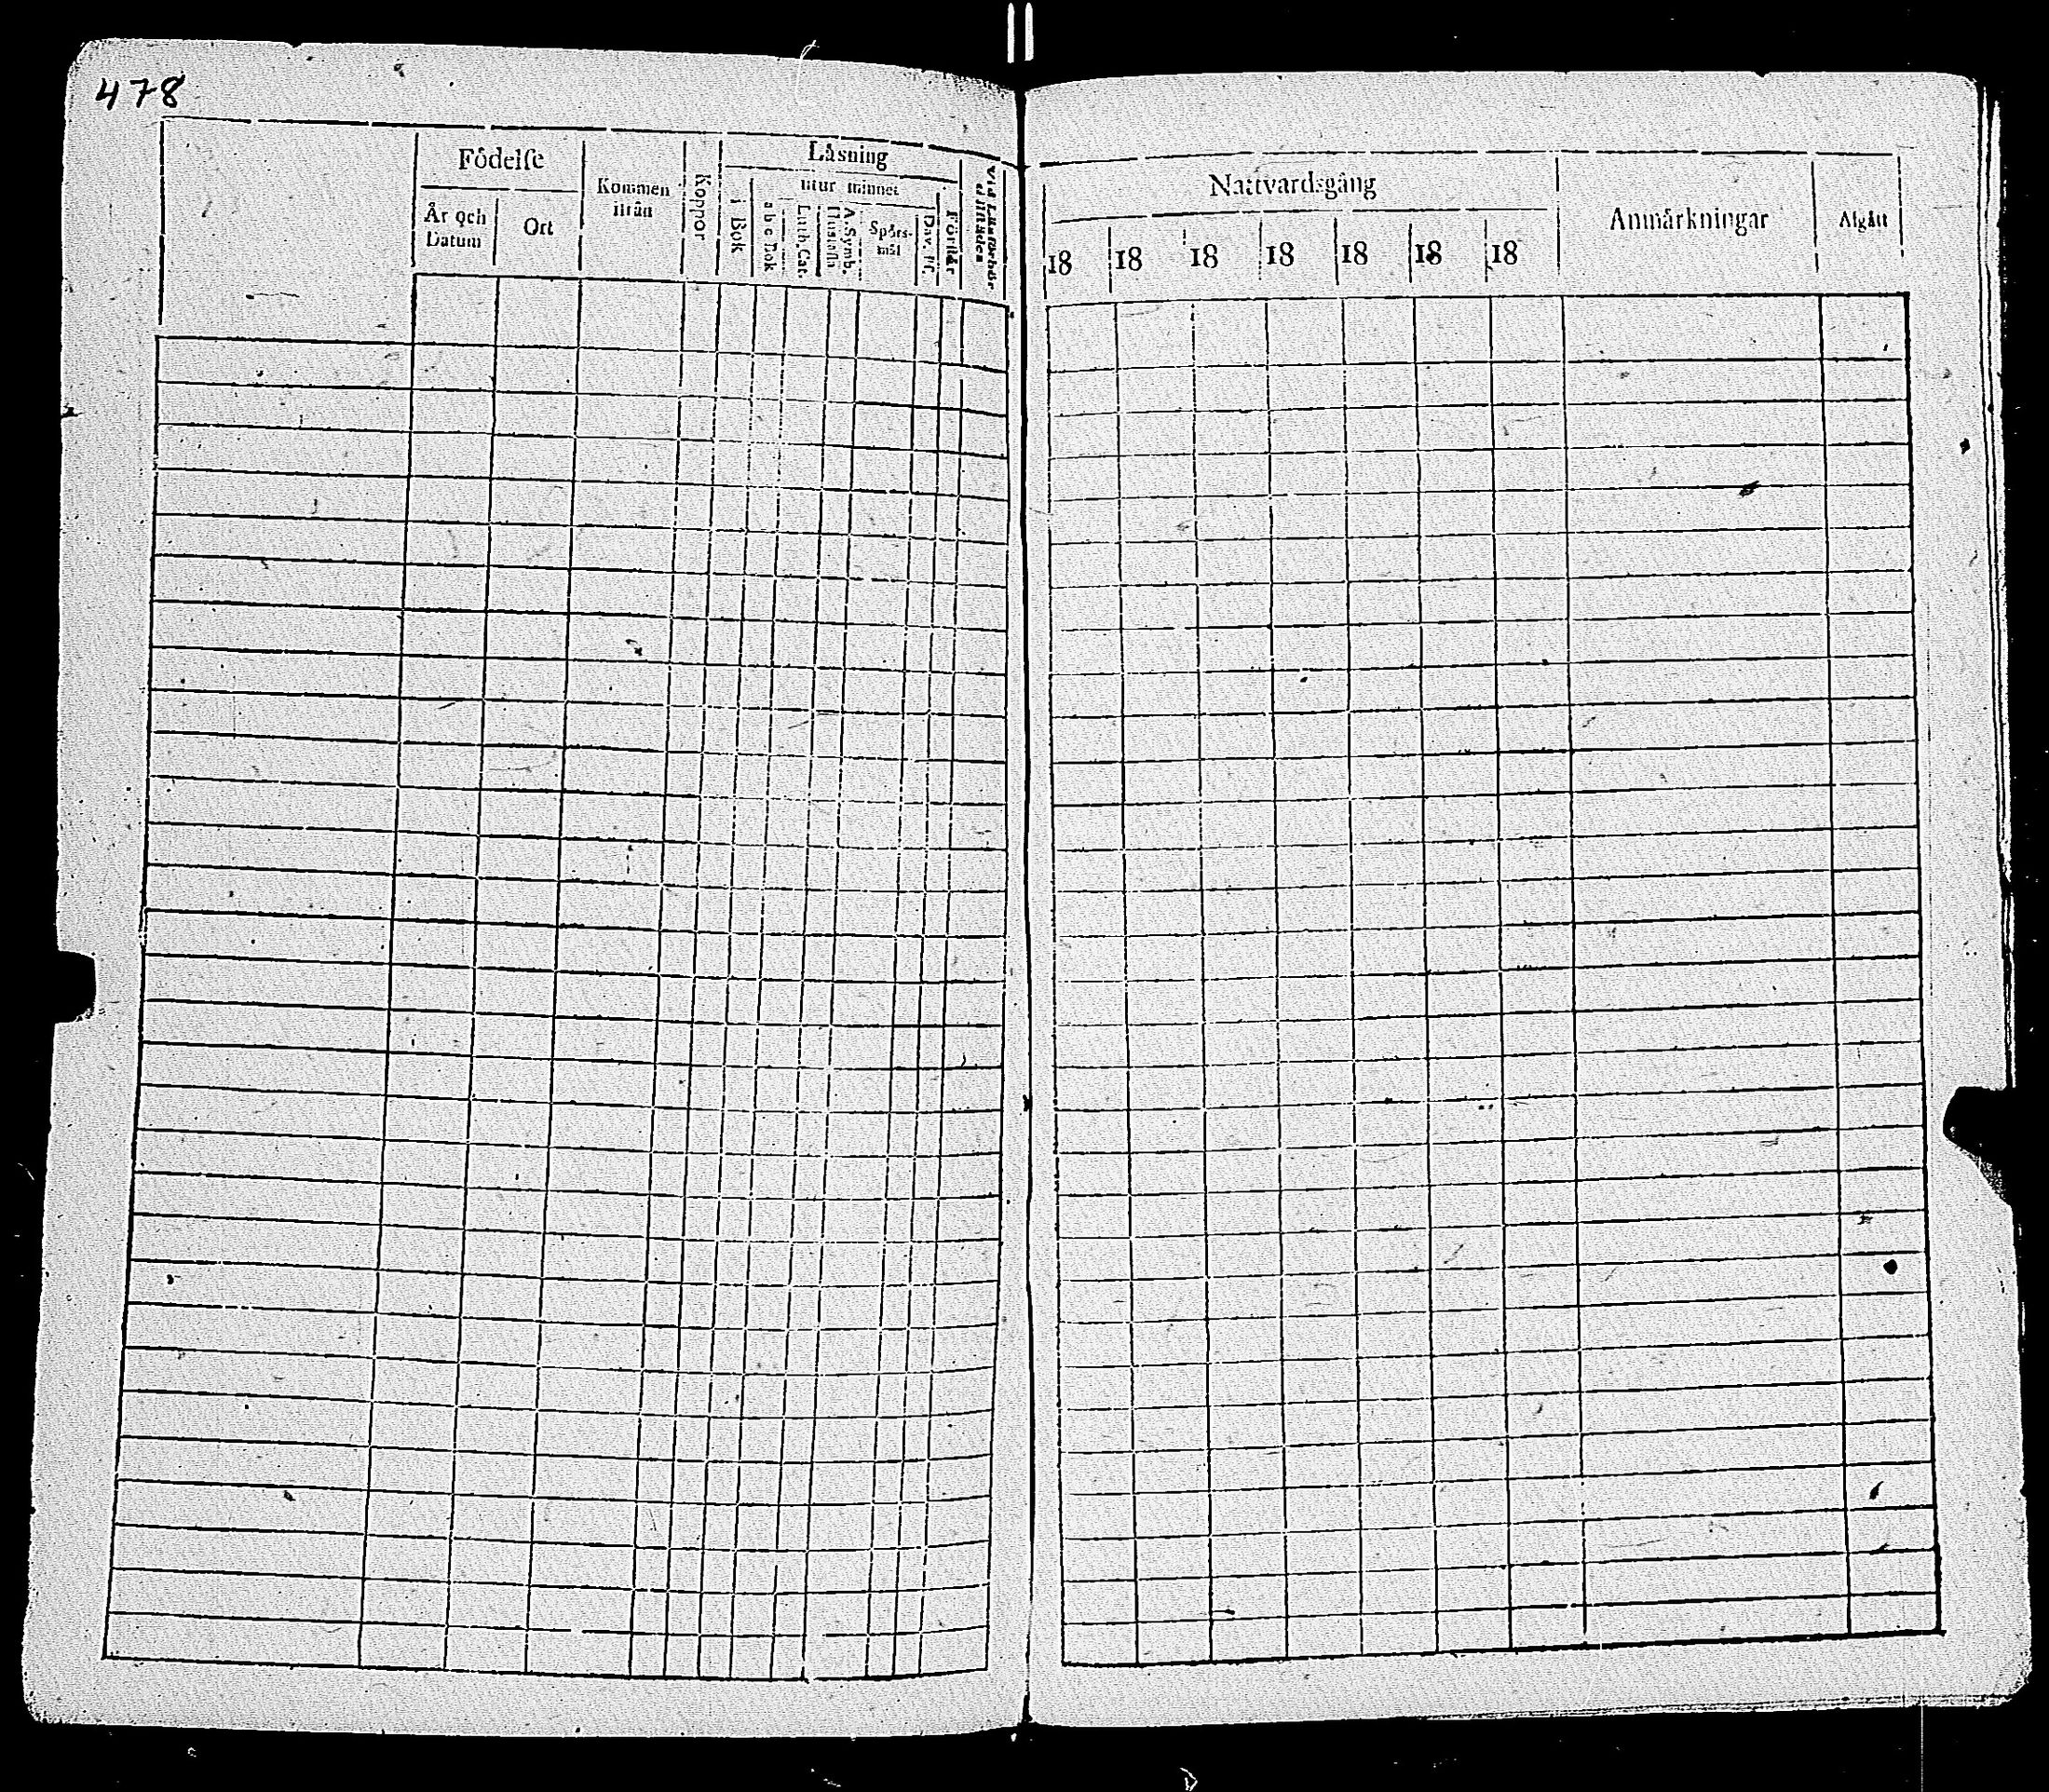 478
Födelſe
År och
Datum
Ort
Kommen
ifrån
Koppor
Läsning
i Bok
utur minnet
a b c Bok
Luth. Cat.
A. Symb.
Huſtafla
Spörs-
mål
Dav. Pſ.
Förſtår
Vid Läsförhör
Nattvardsgång
18 18 18 18 18 18 18
Anmärkningar
Afgått